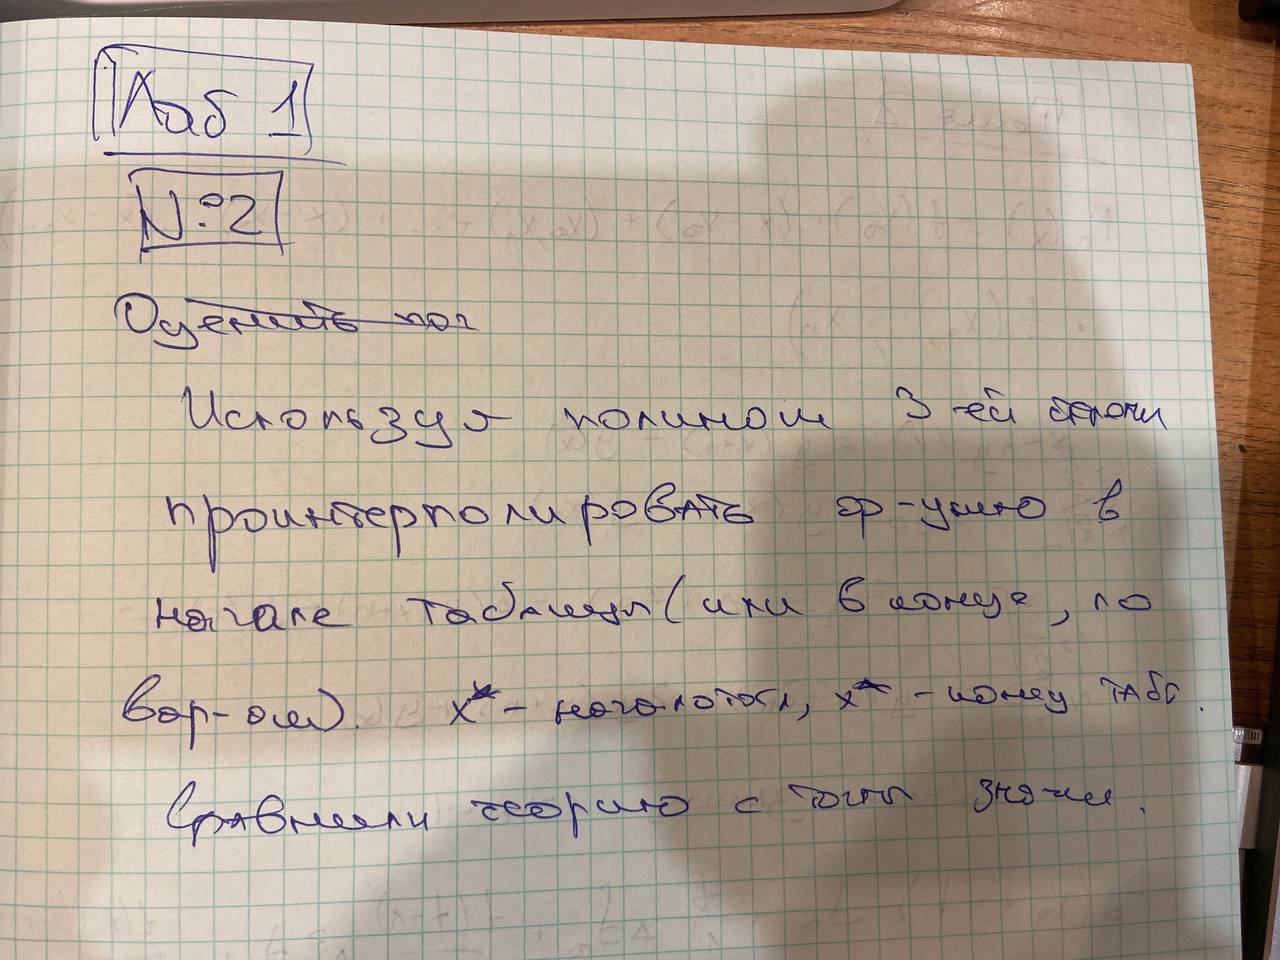 Лаб 1
№2
Оценить пог
Используя полином 3-ей степени
проинтерполировать ф-цию в
начале таблицы (или в конце, по
вар-ам). x* - начало табл, x* - конец табл.
Сравнили теорию с точн знач.